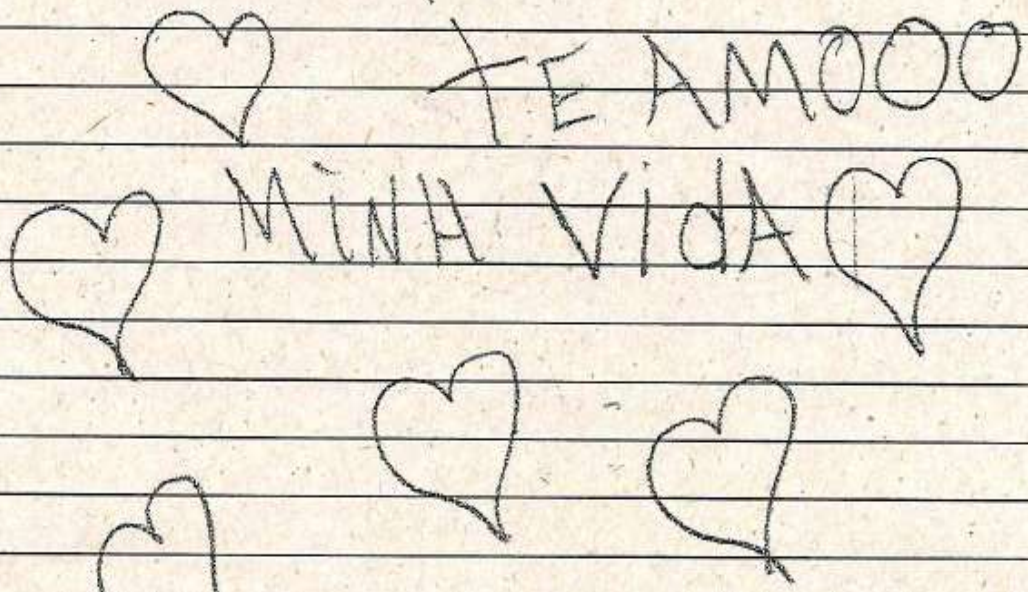 TE AMOOO
MiNH VidA